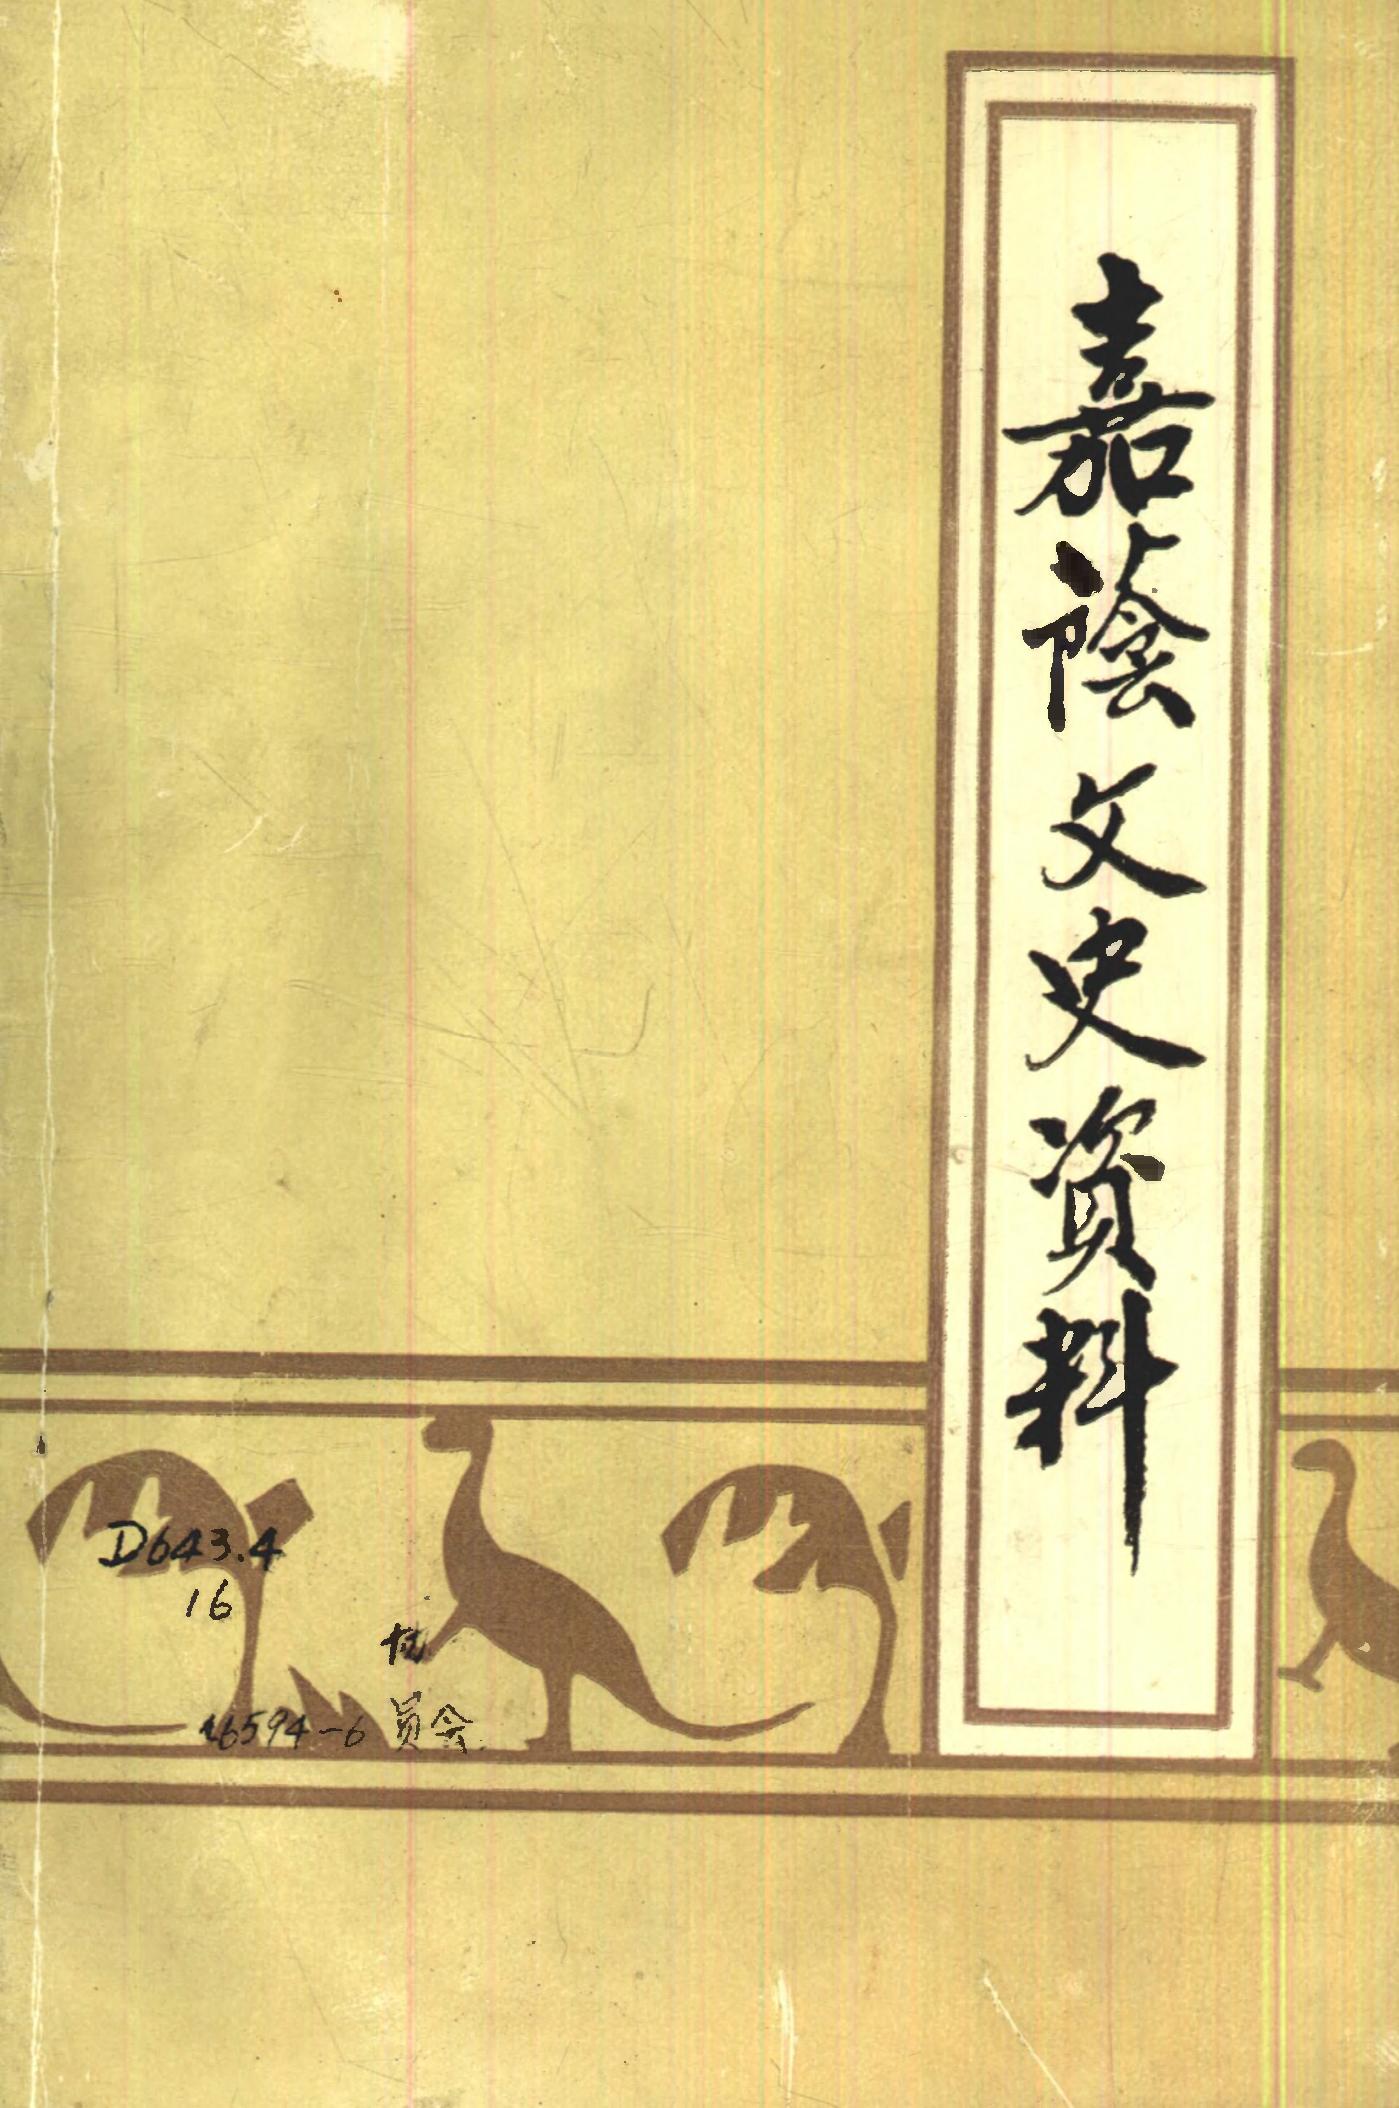 嘉蔭文史资料
D643.4
16
16594-6
员会